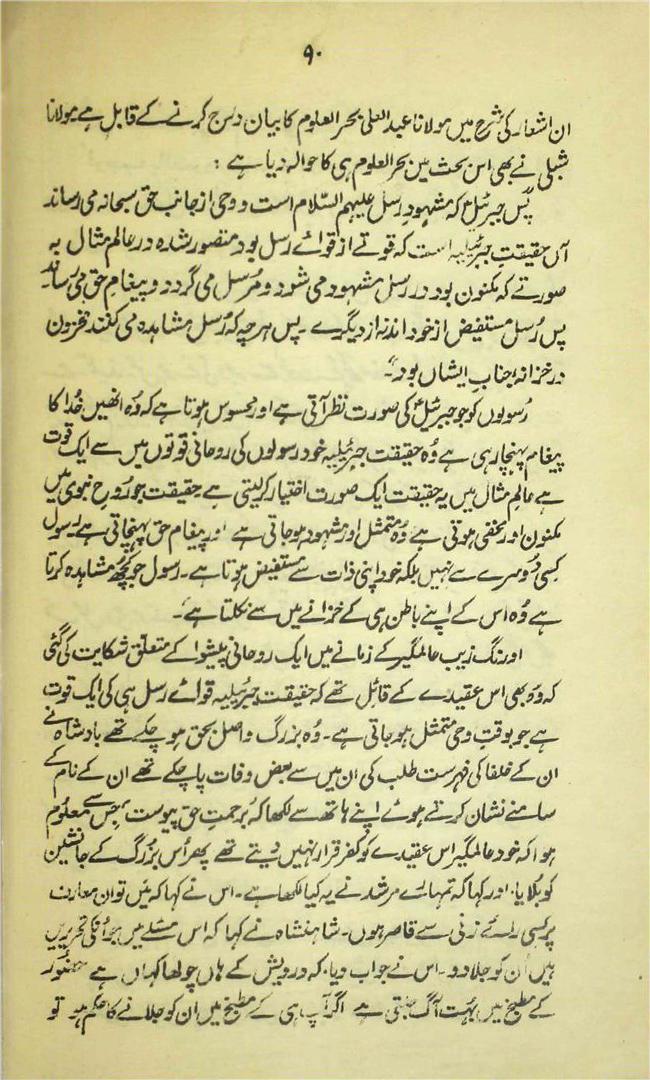 ۹۰
ان اشعار کی شرح میں مولانا عبدالعلی بحرالعلوم کا بیان درج کرنے کے قابل ہے مولانا
شبلی نے بھی اس بحث میں بحرالعلوم ہی کا حوالہ دیا ہے :
پس جبرئیل کہ مشہودِ رسل علیہم السّلام است و وحی از جانب حق سبحانہ می رساند
آں حقیقتِ جبرئیلیہ است کہ قوتے از قوائے رسل بود متصور شدہ در عالم مثال بہ
صورتے کہ مکنون بود در رسل مشہود می شود و مُرسل می گردد و پیغامِ حق می رساند
پس رُسل مستفیض از خود اند نہ از دیگرے ۔ پس ہر چہ کہ رُسل مشاہدہ می کنند مخزون
در خزانۂ جنابِ ایشاں بود"۔
رسولوں کو جو جبرئیل کی صورت نظر آتی ہے اور محسوس ہوتا ہے کہ وُہ انھیں خُدا کا
پیغام پہنچا رہی ہے وُہ حقیقت جبرئیلیہ خود رسولوں کی روحانی قوتوں میں سے ایک قوت
ہے عالمِ مثال میں یہ حقیقت ایک صورت اختیار کر لیتی ہے حقیقت جو رُوحِ نبوی میں
مکنون اور مخفی ہوتی ہے وُہ متمثل اور مشہود ہو جاتی ہے اور پیغامِ حق پہنچاتی ہے رسول
کسی دُوسرے سے نہیں بلکہ خود اپنی ذات سے مستفیض ہوتا ہے۔ رسول جو کچھ مشاہدہ کرتا
ہے وُہ اس کے اپنے باطن ہی کے خزانے میں سے نکلتا ہے"۔
اورنگ زیب عالمگیر کے زمانے میں ایک روحانی پیشوا کے متعلق شکایت کی گئی
کہ وُہ بھی اس عقیدے کے قائل تھے کہ حقیقت جبرئیلیہ قوائے رسل ہی کی ایک قوت
ہے جو بوقتِ وحی متمثل ہو جاتی ہے۔ وُہ بزرگ واصل بحق ہو چکے تھے بادشاہ نے
ان کے خلفا کی فہرست طلب کی ان میں سے بعض وفات پا چکے تھے ان کے نام کے
سامنے نشان کرتے ہوئے اپنے ہاتھ سے لکھا کہ "برحمتِ حق پیوست" جس سے معلُوم
ہوا کہ خود عالمگیر اس عقیدے کو کفر قرار نہیں دیتے تھے پھر اُس بزرگ کے جانشین
کو بُلایا، اور کہا کہ تمہارے مرشد نے یہ کیا لکھا ہے۔ اس نے کہا کہ میں تو ان معارف
پر کسی رائے زنی سے قاصر ہوں۔ شاہنشاہ نے کہا کہ اس مسئلے میں جو اُن کی تحریریں
ہیں اُن کو جلا دو۔ اس نے جواب دیا، کہ درویش کے ہاں چولھا کہاں ہے حضُور
کے مطبخ میں بہُت آگ جلتی ہے اگر آپ ہی کے مطبخ میں ان کو جلانے کا حکم ہو تو